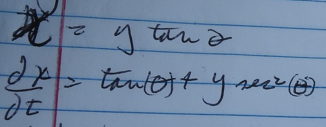 x = y tan θ
dx/dt = tan(θ) + y sec²(θ)